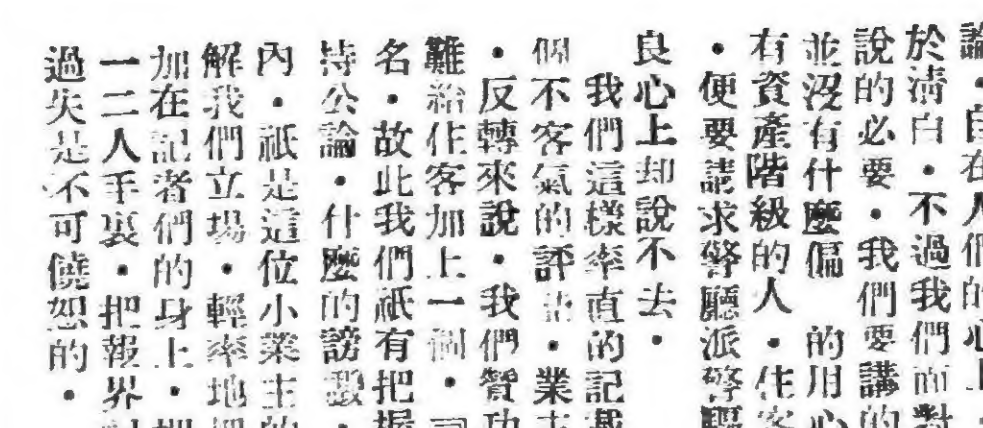 論・自在人們的心上・
於清白・不過我們面對
說的必要・我們要講的
並沒有什麼偏 的用心
有資產階級的人・住客
・便要請求警廳派警驅
良心上却說不去・
我們這樣率直的記載
個不客氣的評 ・業主
・反轉來說・我們贊功
難給住客加上一個「司
名・故此我們祇有把握
持公論・什麼的謗毀・
內・祇是這位小業主的
解我們立場・輕率地把
加在記者們的身上・把
一二人手裏・把報界
過失是不可饒恕的・